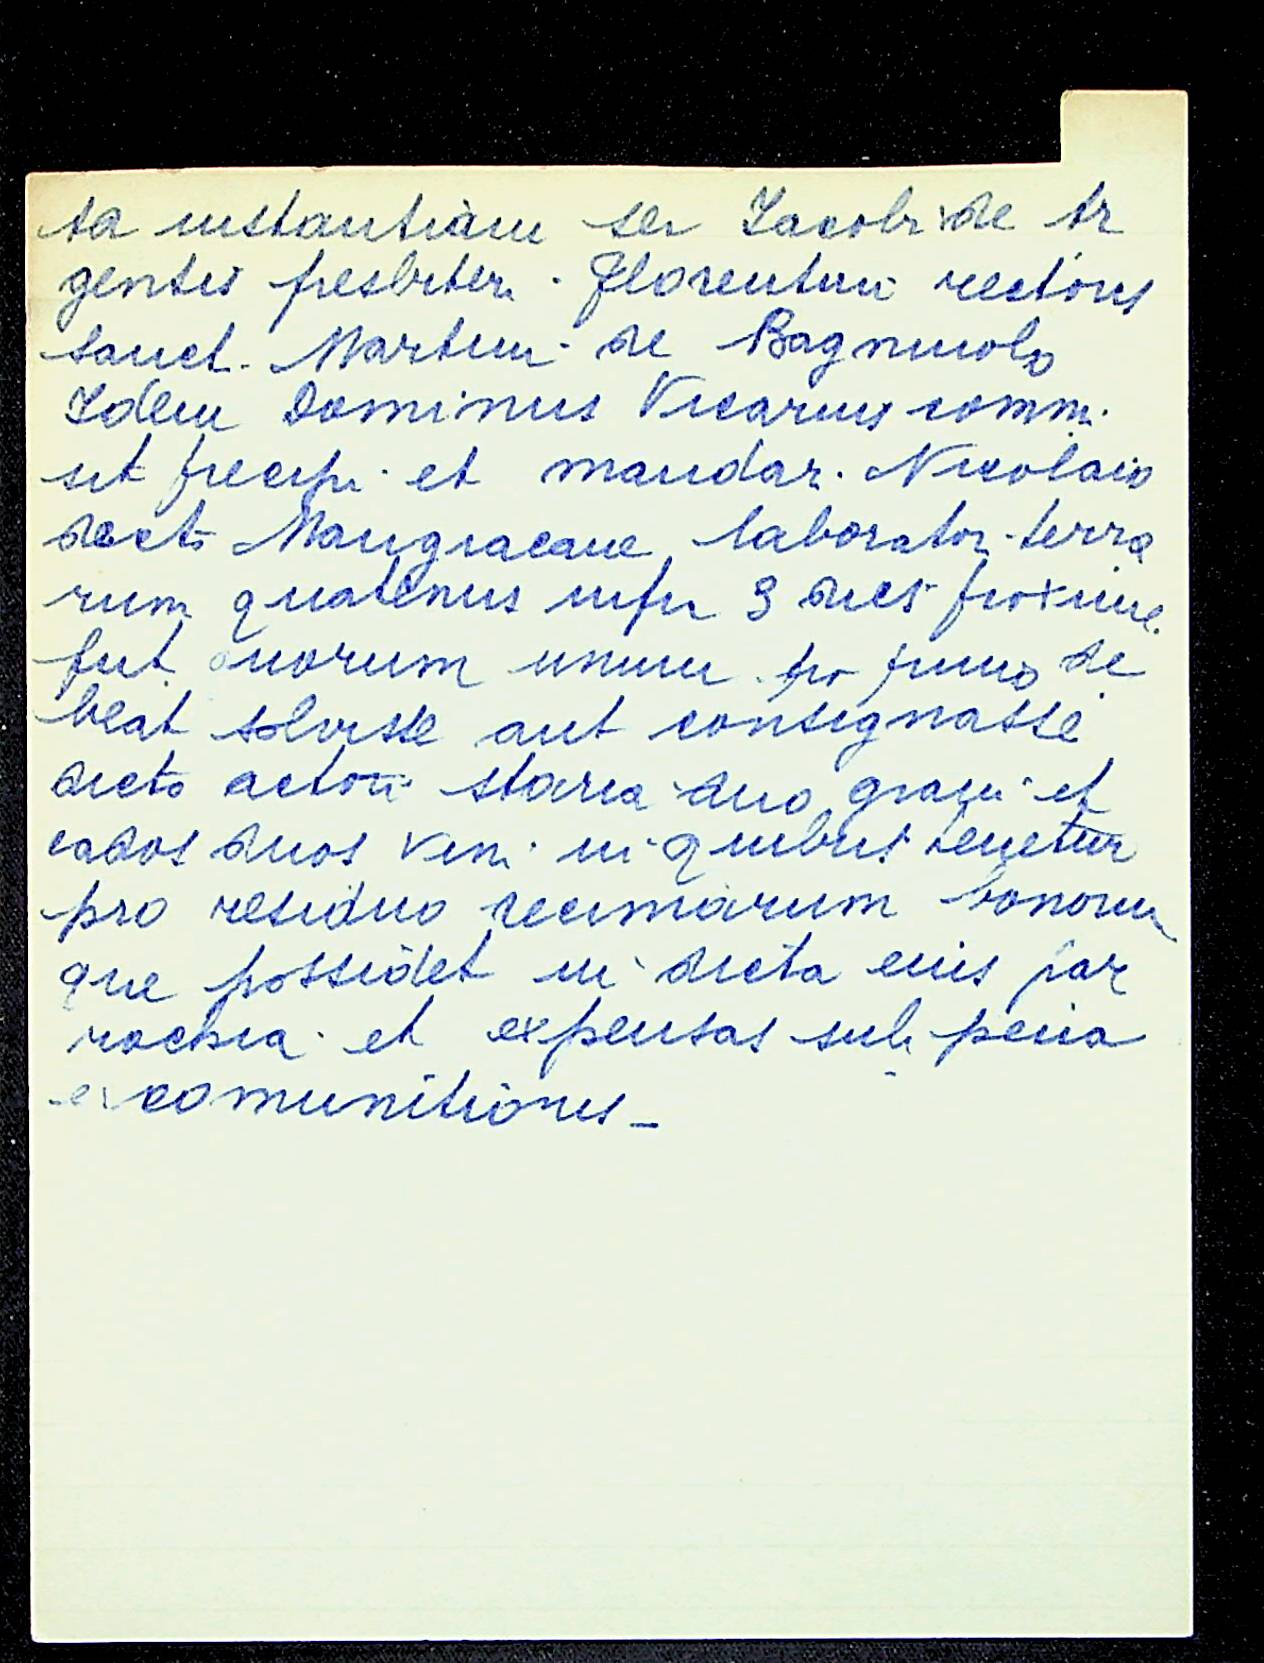 ta instantiam ser Iacobi de Ar
gentis presbiteri. Florentini rectoris
sanct. Martini de Bagnuolo
Idem Dominus Vicarius commi.
sit precipi. et mandar. Nicolaio
decto Mangiacane laborator. terra
rum quatenus infr 3 dies proxime.
fut. quorum unum pro primo de
beat solvisse aut consignasse
dicto actori staria duo grani et
cados duos vini in quibus tenetur
pro residuo decimarum bonorum
que possidet in dicta eius par
rochia et expensas sub pena
excomunitionis_